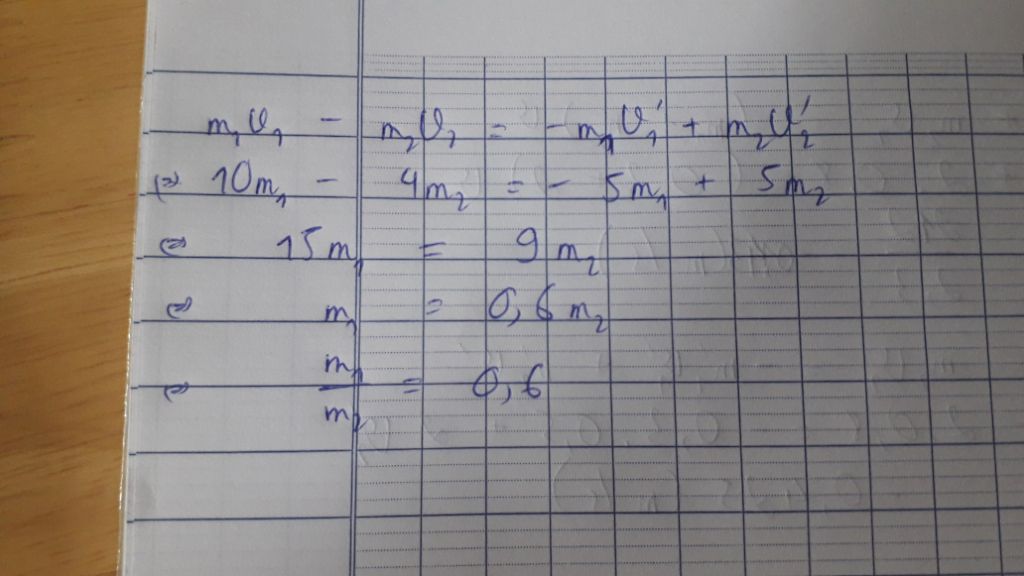 m₁v₁ - m₂v₂ = - m₁v₁' + m₂v₂'
⇔ 10m₁ - 4m₂ = - 5m₁ + 5m₂
⇔ 15m₁ = 9m₂
⇔ m₁ = 0,6m₂
⇔ m₁/m₂ = 0,6